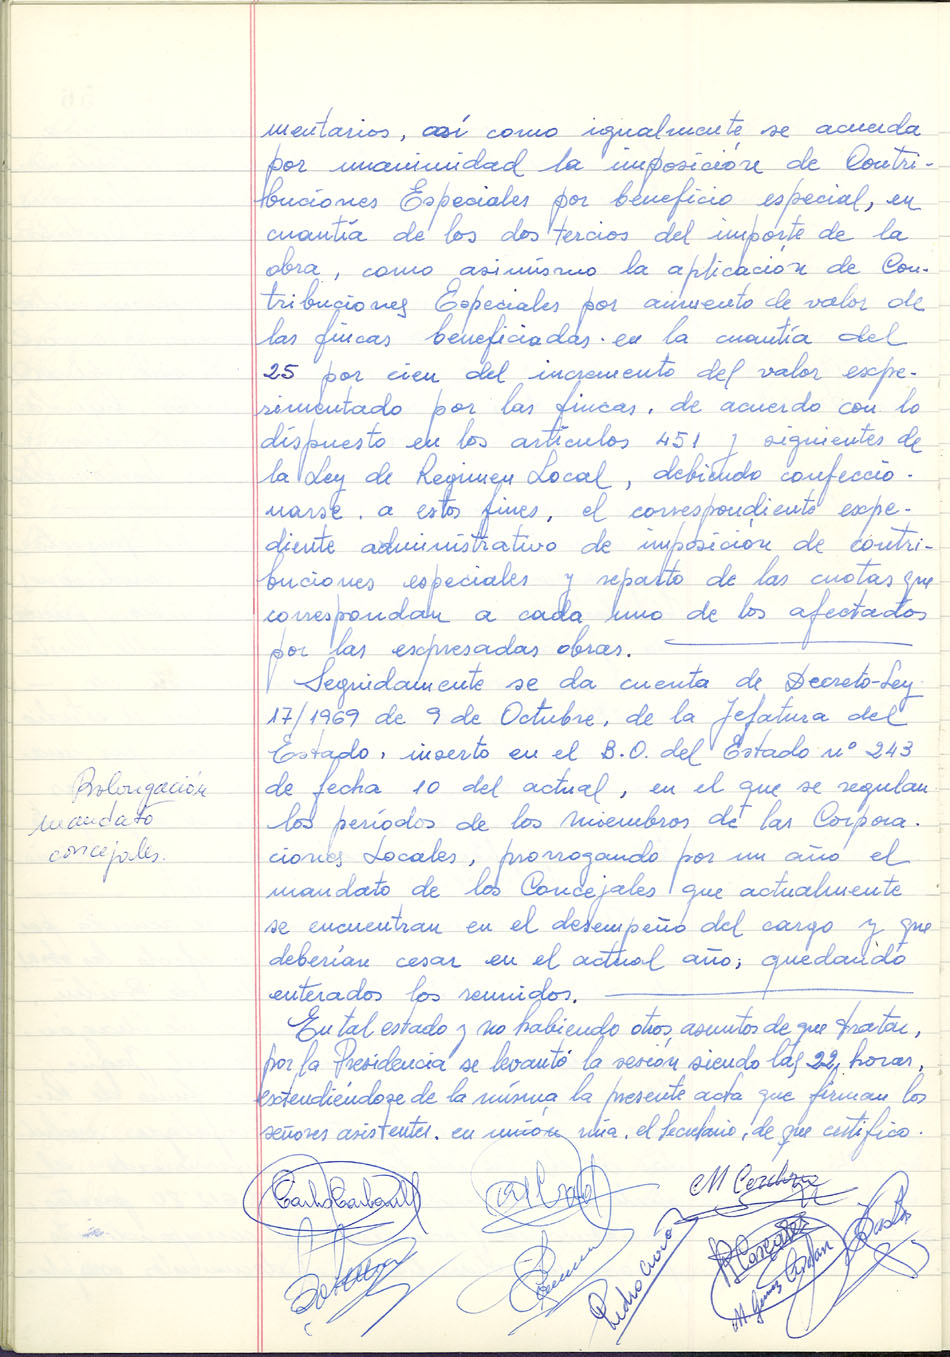 mentarios, así como igualmente se acuerda
por unanimidad la imposición de Contri-
buciones Especiales por beneficio especial, en
cuantía de los dos tercios del importe de la
obra, como asimismo la aplicación de Con-
tribuciones Especiales por aumento de valor de
las fincas beneficiadas. en la cuantía del
25 por cien del incremento del valor expe-
rimentado por las fincas, de acuerdo con lo
dispuesto en los artículos 451 y siguientes de
la Ley de Regimen Local, debiendo confeccio-
narse, a estos fines, el correspondiente expe-
diente administrativo de imposición de contri-
buciones especiales y reparto de las cuotas que
correspondan a cada uno de los afectados
por las expresadas obras.
Seguidamente se da cuenta de Decreto-Ley
17/1969 de 9 de Octubre, de la Jefatura del
Estado, inserto en el B.O. del Estado nº 243
de fecha 10 del actual, en el que se regulan
los períodos de los miembros de las Corpora-
ciones Locales, prorrogando por un año el
mandato de los Concejales que actualmente
se encuentran en el desempeño del cargo y que
deberían cesar en el actual año; quedando
enterados los reunidos.
Prolongación
mandato
concejales.
En tal estado y no habiendo otros asuntos de que tratar,
por la Presidencia se levantó la sesión siendo las 22, horas,
extendiéndose de la misma la presente acta que firman los
señores asistentes, en unión mía, el Secretario, de que certifico.
Carlos Carbonell
Pedro